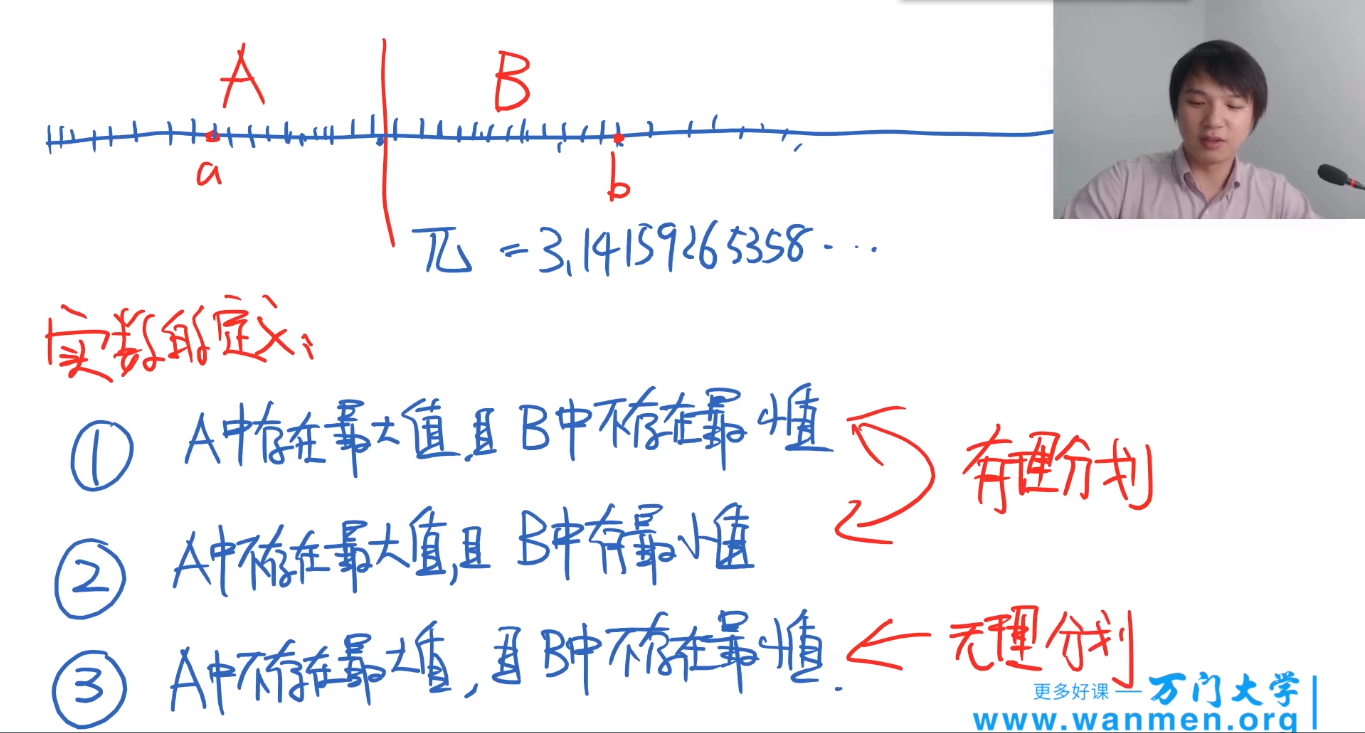 A B
a b
π = 3.14159265358...
实数的定义:
① A中存在最大值,且B中不存在最小值
有理分划
② A中不存在最大值,且B中存在最小值
③ A中不存在最大值,且B中不存在最小值.
无理分划
更多好课 — 万门大学
www.wanmen.org